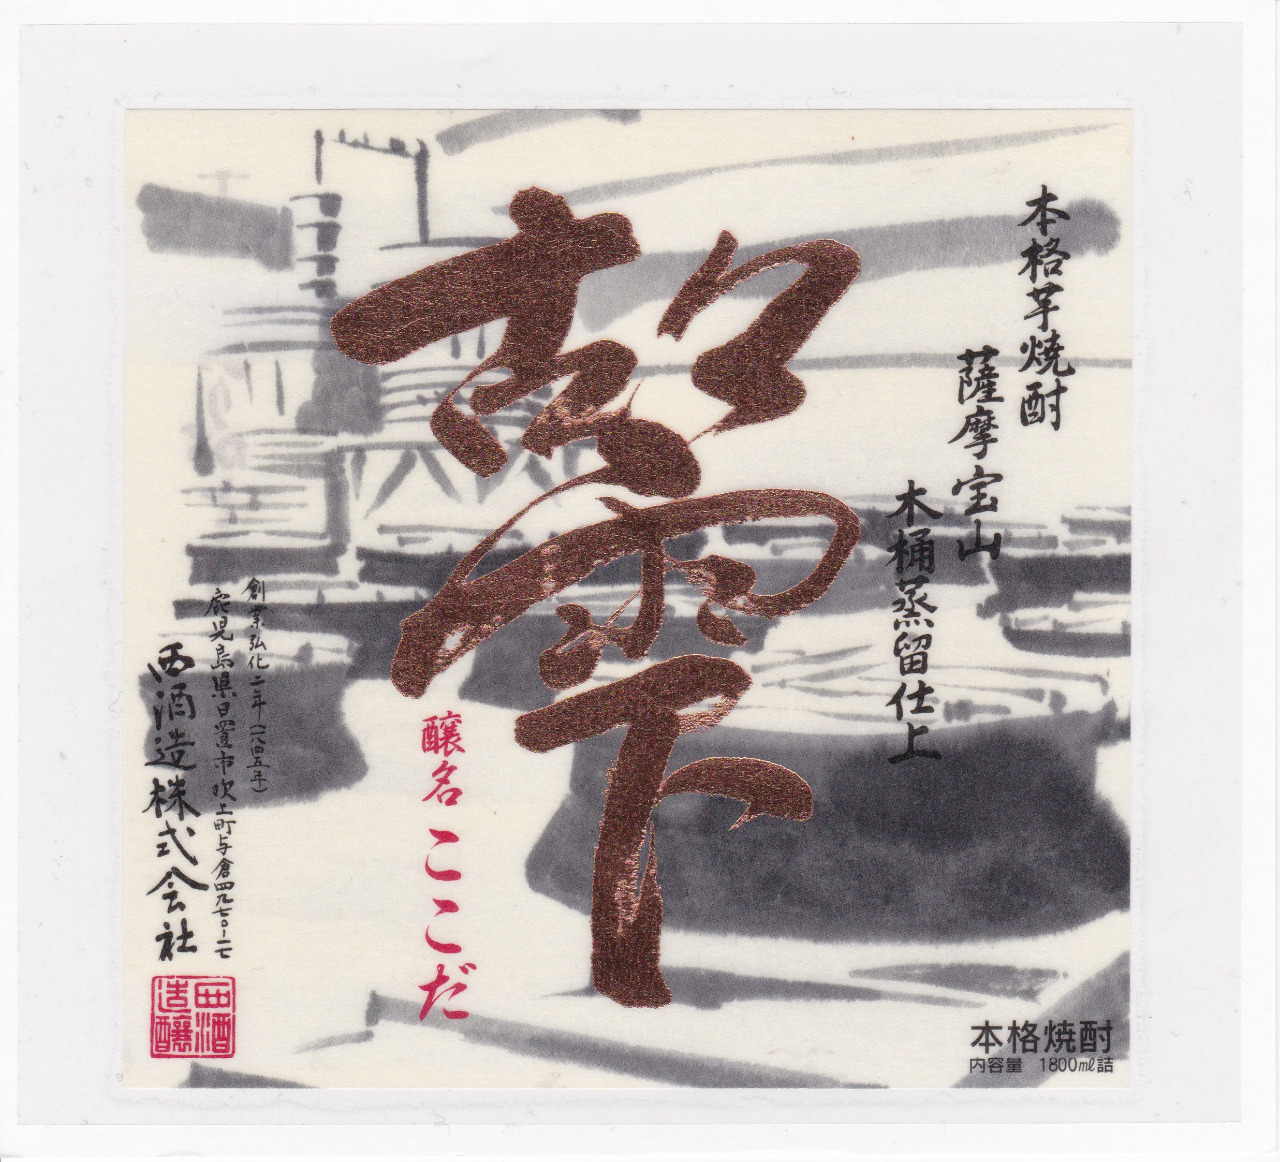 本格芋焼酎
薩摩宝山
木桶蒸留仕上
雫
醸名 ここだ
創業弘化二年(一八四五年)
鹿児島県日置市吹上町与倉四九七〇-一七
西酒造株式会社
西酒
造釀
本格焼酎
内容量 1800ml詰